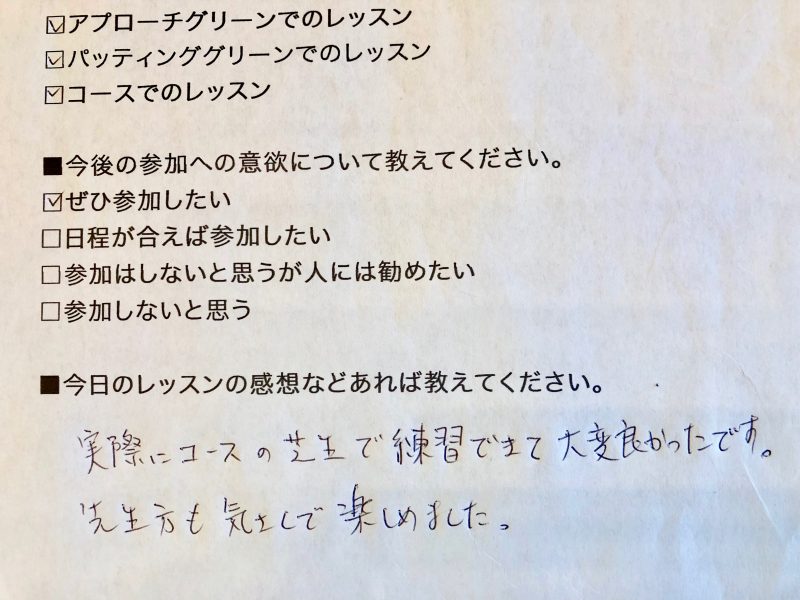 ☑アプローチグリーンでのレッスン
☑パッティンググリーンでのレッスン
☑コースでのレッスン
■今後の参加への意欲について教えてください。
☑ぜひ参加したい
□日程が合えば参加したい
□参加はしないと思うが人には勧めたい
□参加しないと思う
■今日のレッスンの感想などあれば教えてください。
実際にコースの芝生で練習できて大変良かったです。
先生方も気さくで楽しめました。